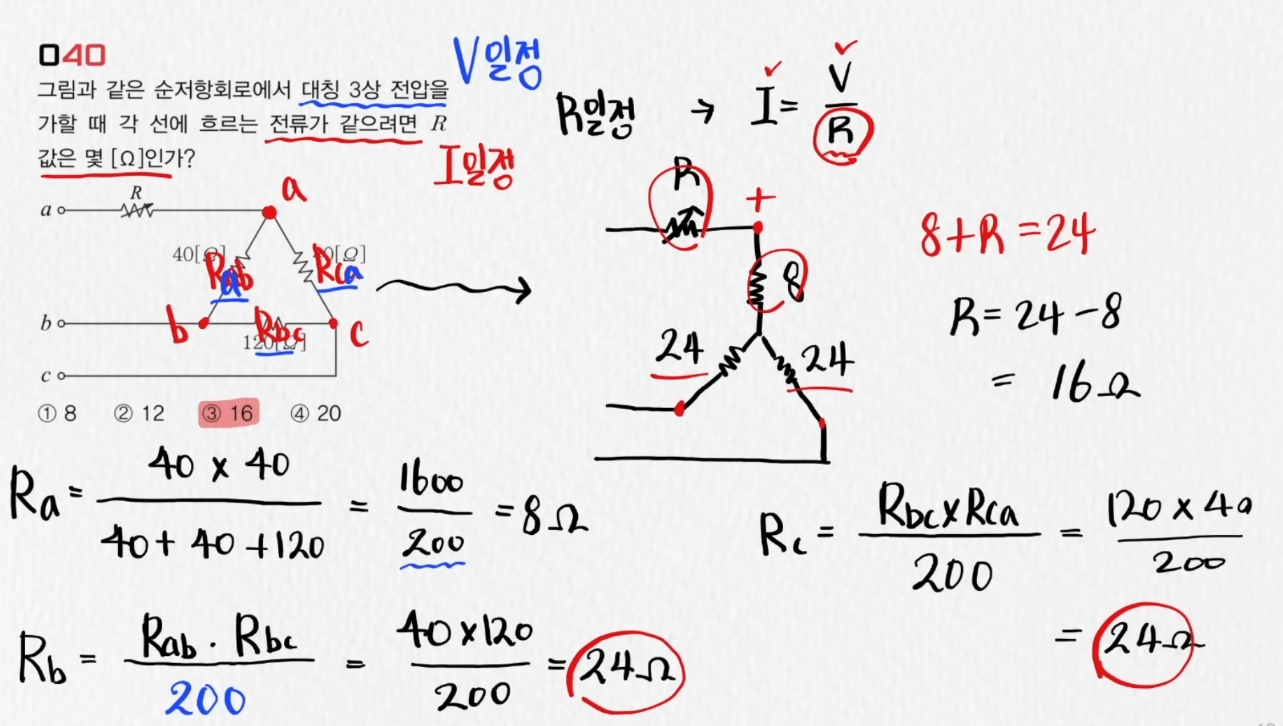 040
그림과 같은 순저항회로에서 대칭 3상 전압을
가할 때 각 선에 흐르는 전류가 같으려면 R
값은 몇 [Ω]인가?
V일정
I일정
R
a
a
40[Ω]
Rab
Rca
b
b
Rbc
c
120[Ω]
c
① 8 ② 12 ③ 16 ④ 20
R일정 → I = V/R
R
+
8
24
24
8+R=24
R= 24-8
= 16Ω
Ra = (40 x 40)/(40+40+120) = 1600/200 = 8Ω
Rb = (Rab · Rbc)/200 = (40x120)/200 = 24Ω
Rc = (RbcxRca)/200 = (120 x 40)/200
= 24Ω